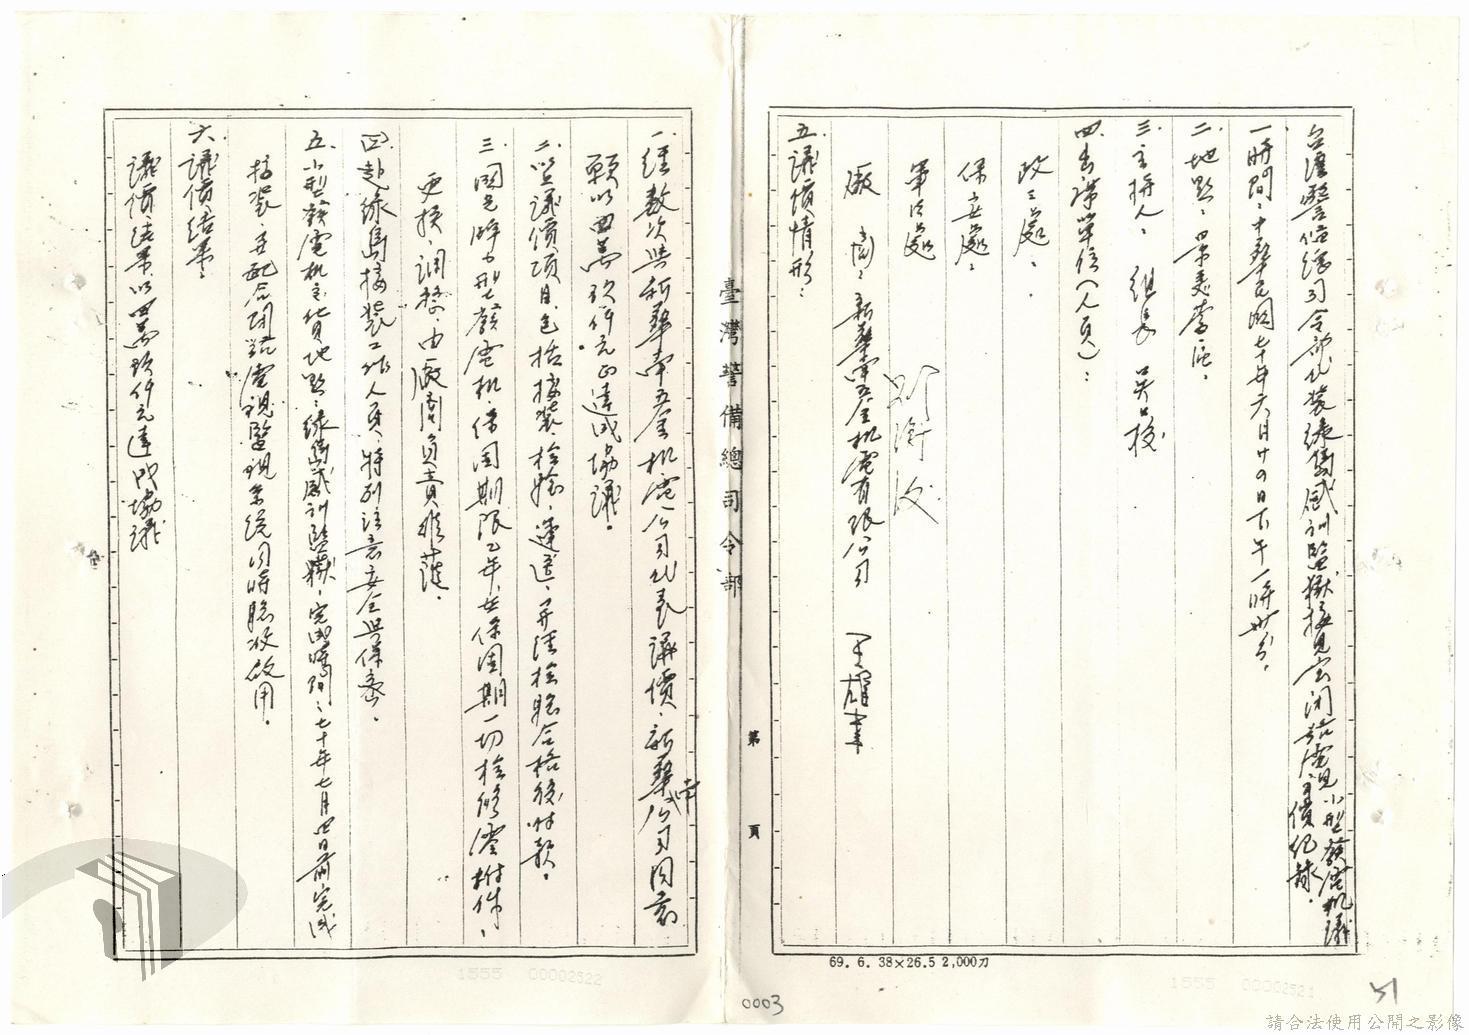 台灣警備總司令部加裝綠島感訓監獄接見室閉路電視小型發電機議價紀錄。
一、時間：中華民國七十年六月廿四日下午一時卅分。
二、地點：景美看守所。
三、主持人：組長 吳上校
四、出席單位（人員）：
政三處：
保安處：
軍法處
廠商：新華南五金機電有限公司
五、議價情形：
一、經數次與新華南五金机電公司代表議價，新華南公司同意
願以四萬玖仟元正達成協議。
二、以上議價項目，包括接裝、檢驗、運送，并經檢驗合格後付款。
三、國光牌小型發電机保固期限乙年，在保固期一切檢修零附件，
更換、調整，由廠商負責維護。
四、赴綠島接裝工作人員，特別注意安全與保密。
五、小型發電机交貨地點：綠島感訓監獄，完成時間：七十年七月四日前完成
接裝，並配合閉路電視監視系統同時驗收啟用。
六、議價結果：
議價結果以四萬玖仟元達成協議
臺灣警備總司令部
第 頁
69. 6. 38×26.5 2,000刀
1555 00002522
1555 00002521
0003
51
請合法使用公開之影像